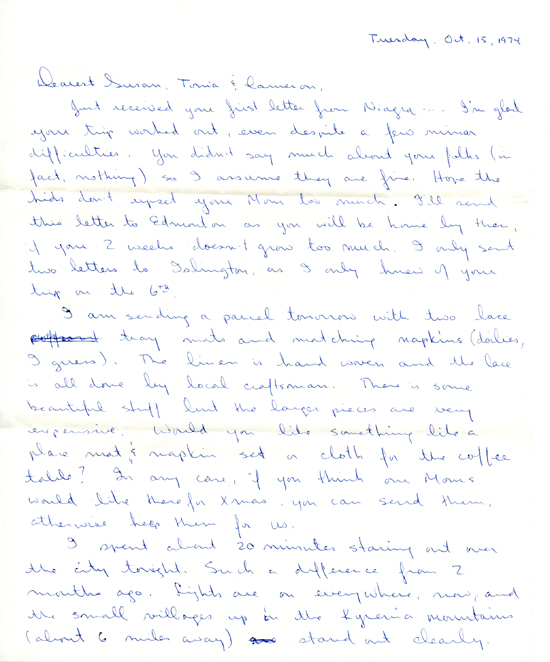 Tuesday. Oct. 15, 1974
Dearest Susan. Tonia & Cameron,
Just received your first letter from Niagra .... I'm glad
your trip worked out, even despite a few minor
difficulties. You didn't say much about your folks (in
fact, nothing) so I assume they are fine. Hope the
kids don't upset your Mom too much. I'll send
this letter to Edmonton as you will be home by then,
if your 2 weeks doesn't grow too much. I only sent
two letters to Islington, as I only knew of your
trip on the 6th.
I am sending a parcel tomorrow with two lace
tray mats and matching napkins (doilies,
I guess). The linen is hand woven and the lace
is all done by local craftsman. There is some
beautiful stuff but the larger pieces are very
expensive. Would you like something like a
place mat & napkin set or cloth for the coffee
table? In any case, if you think our Moms
would like these for Xmas, you can send them,
otherwise keep them for us.
I spent about 20 minutes staring out over
the city tonight. Such a difference from 2
months ago. Lights are on everywhere, now, and
the small villages up in the Kyrenia mountains
(about 6 miles away) stand out clearly.